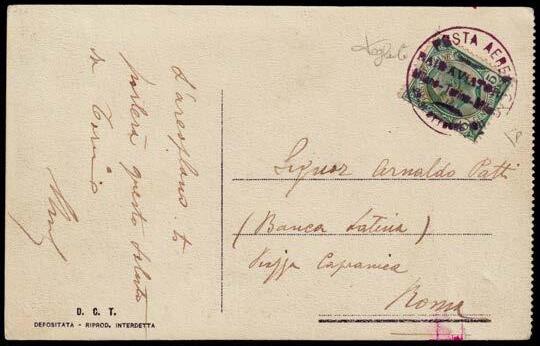 L'areoplano ti
porterà questo saluto
da Torino
POSTA AEREA
Signor Arnaldo Patti
(Banca Latina)
Piazza Capranica
Roma
D. C. T.
DEPOSITATA - RIPROD. INTERDETTA